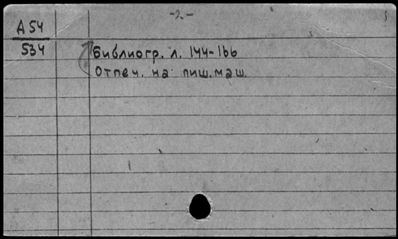 -2-
А54
534
Библиогр. л. 144-166
Отпеч. на пиш. маш.